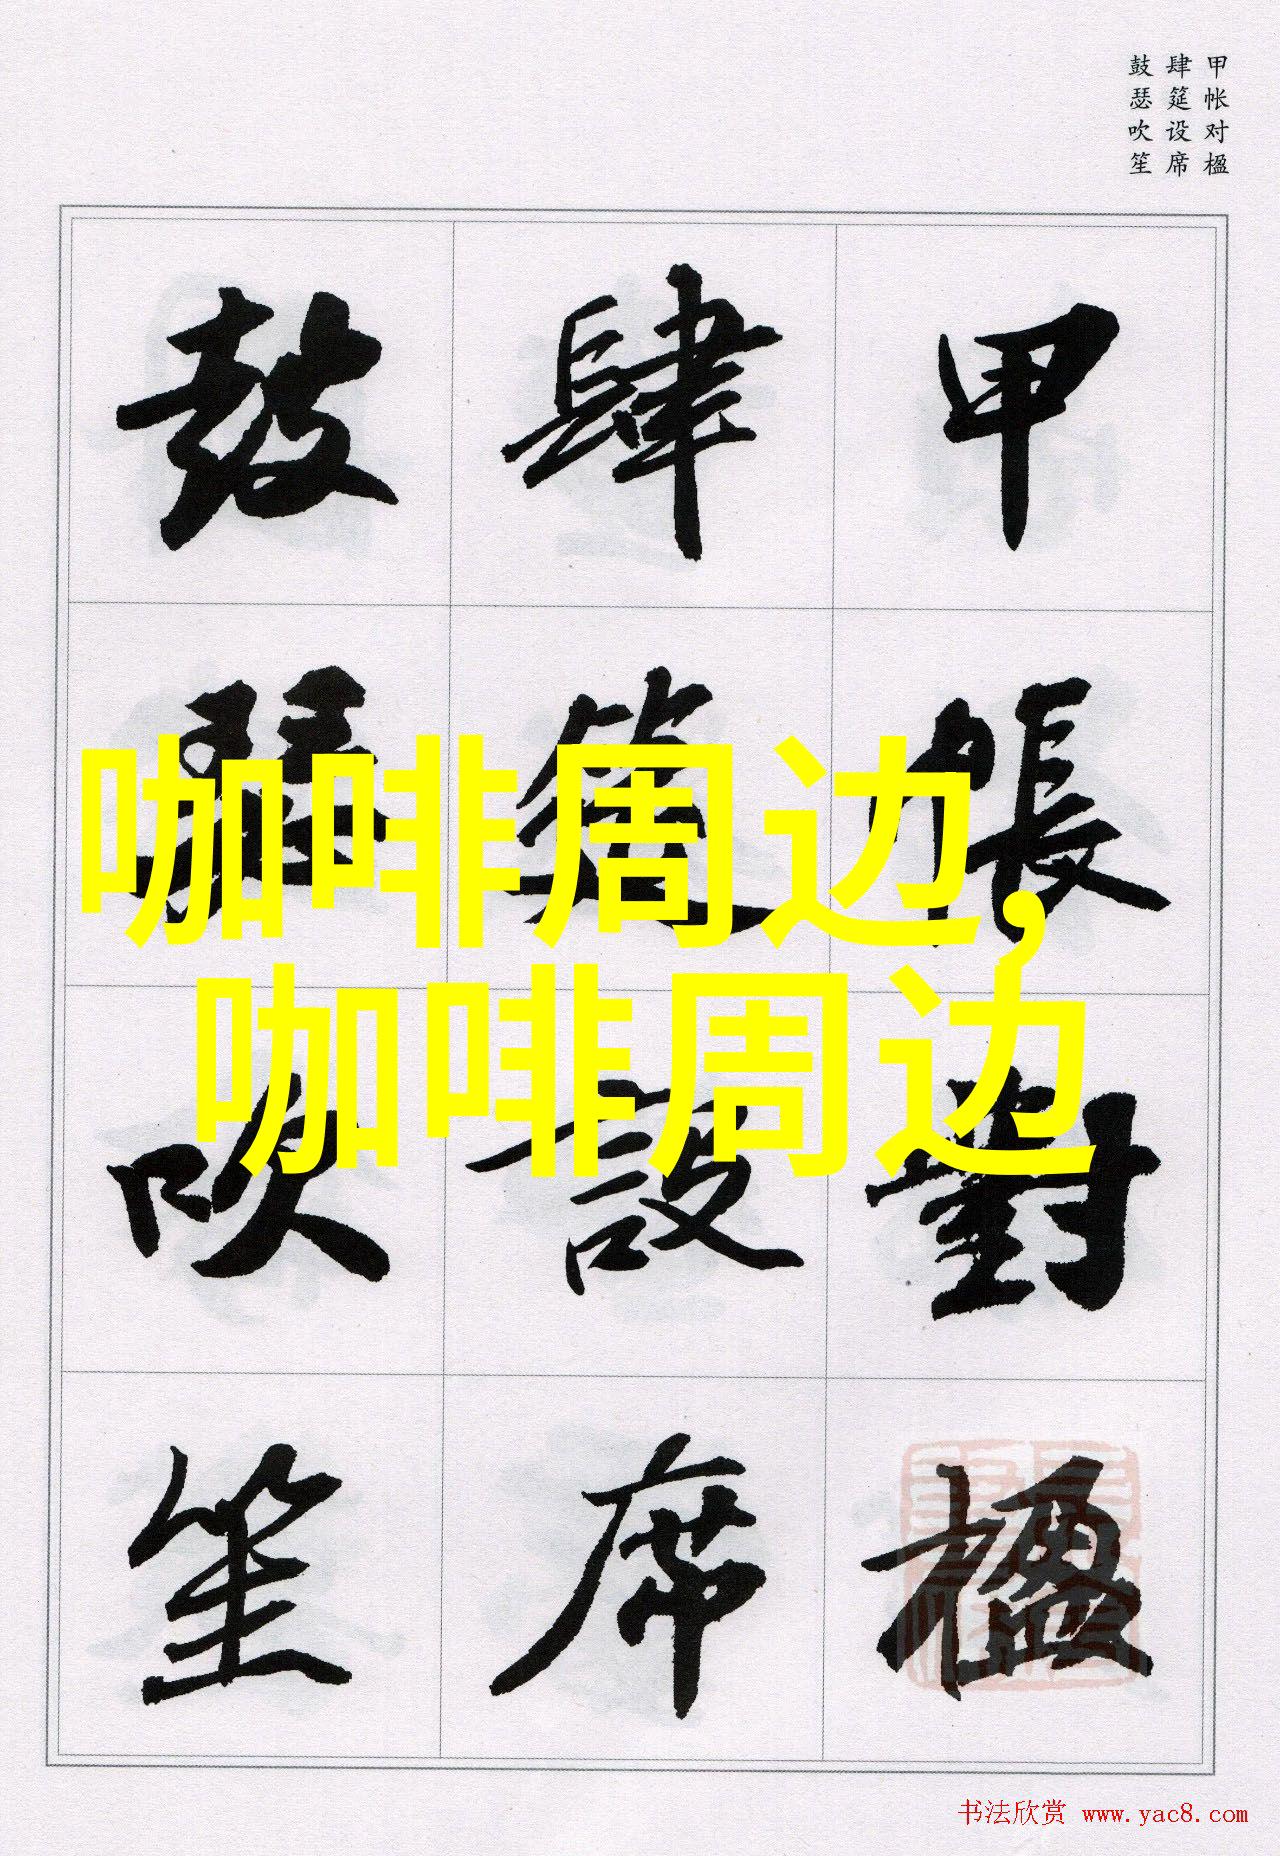 甲帐对楹
肆筵设席
鼓瑟吹笙
甲帳對楹
肆筵設席
鼓瑟吹笙
咖啡周边,
咖啡周边
书法欣赏 www.yac8.com